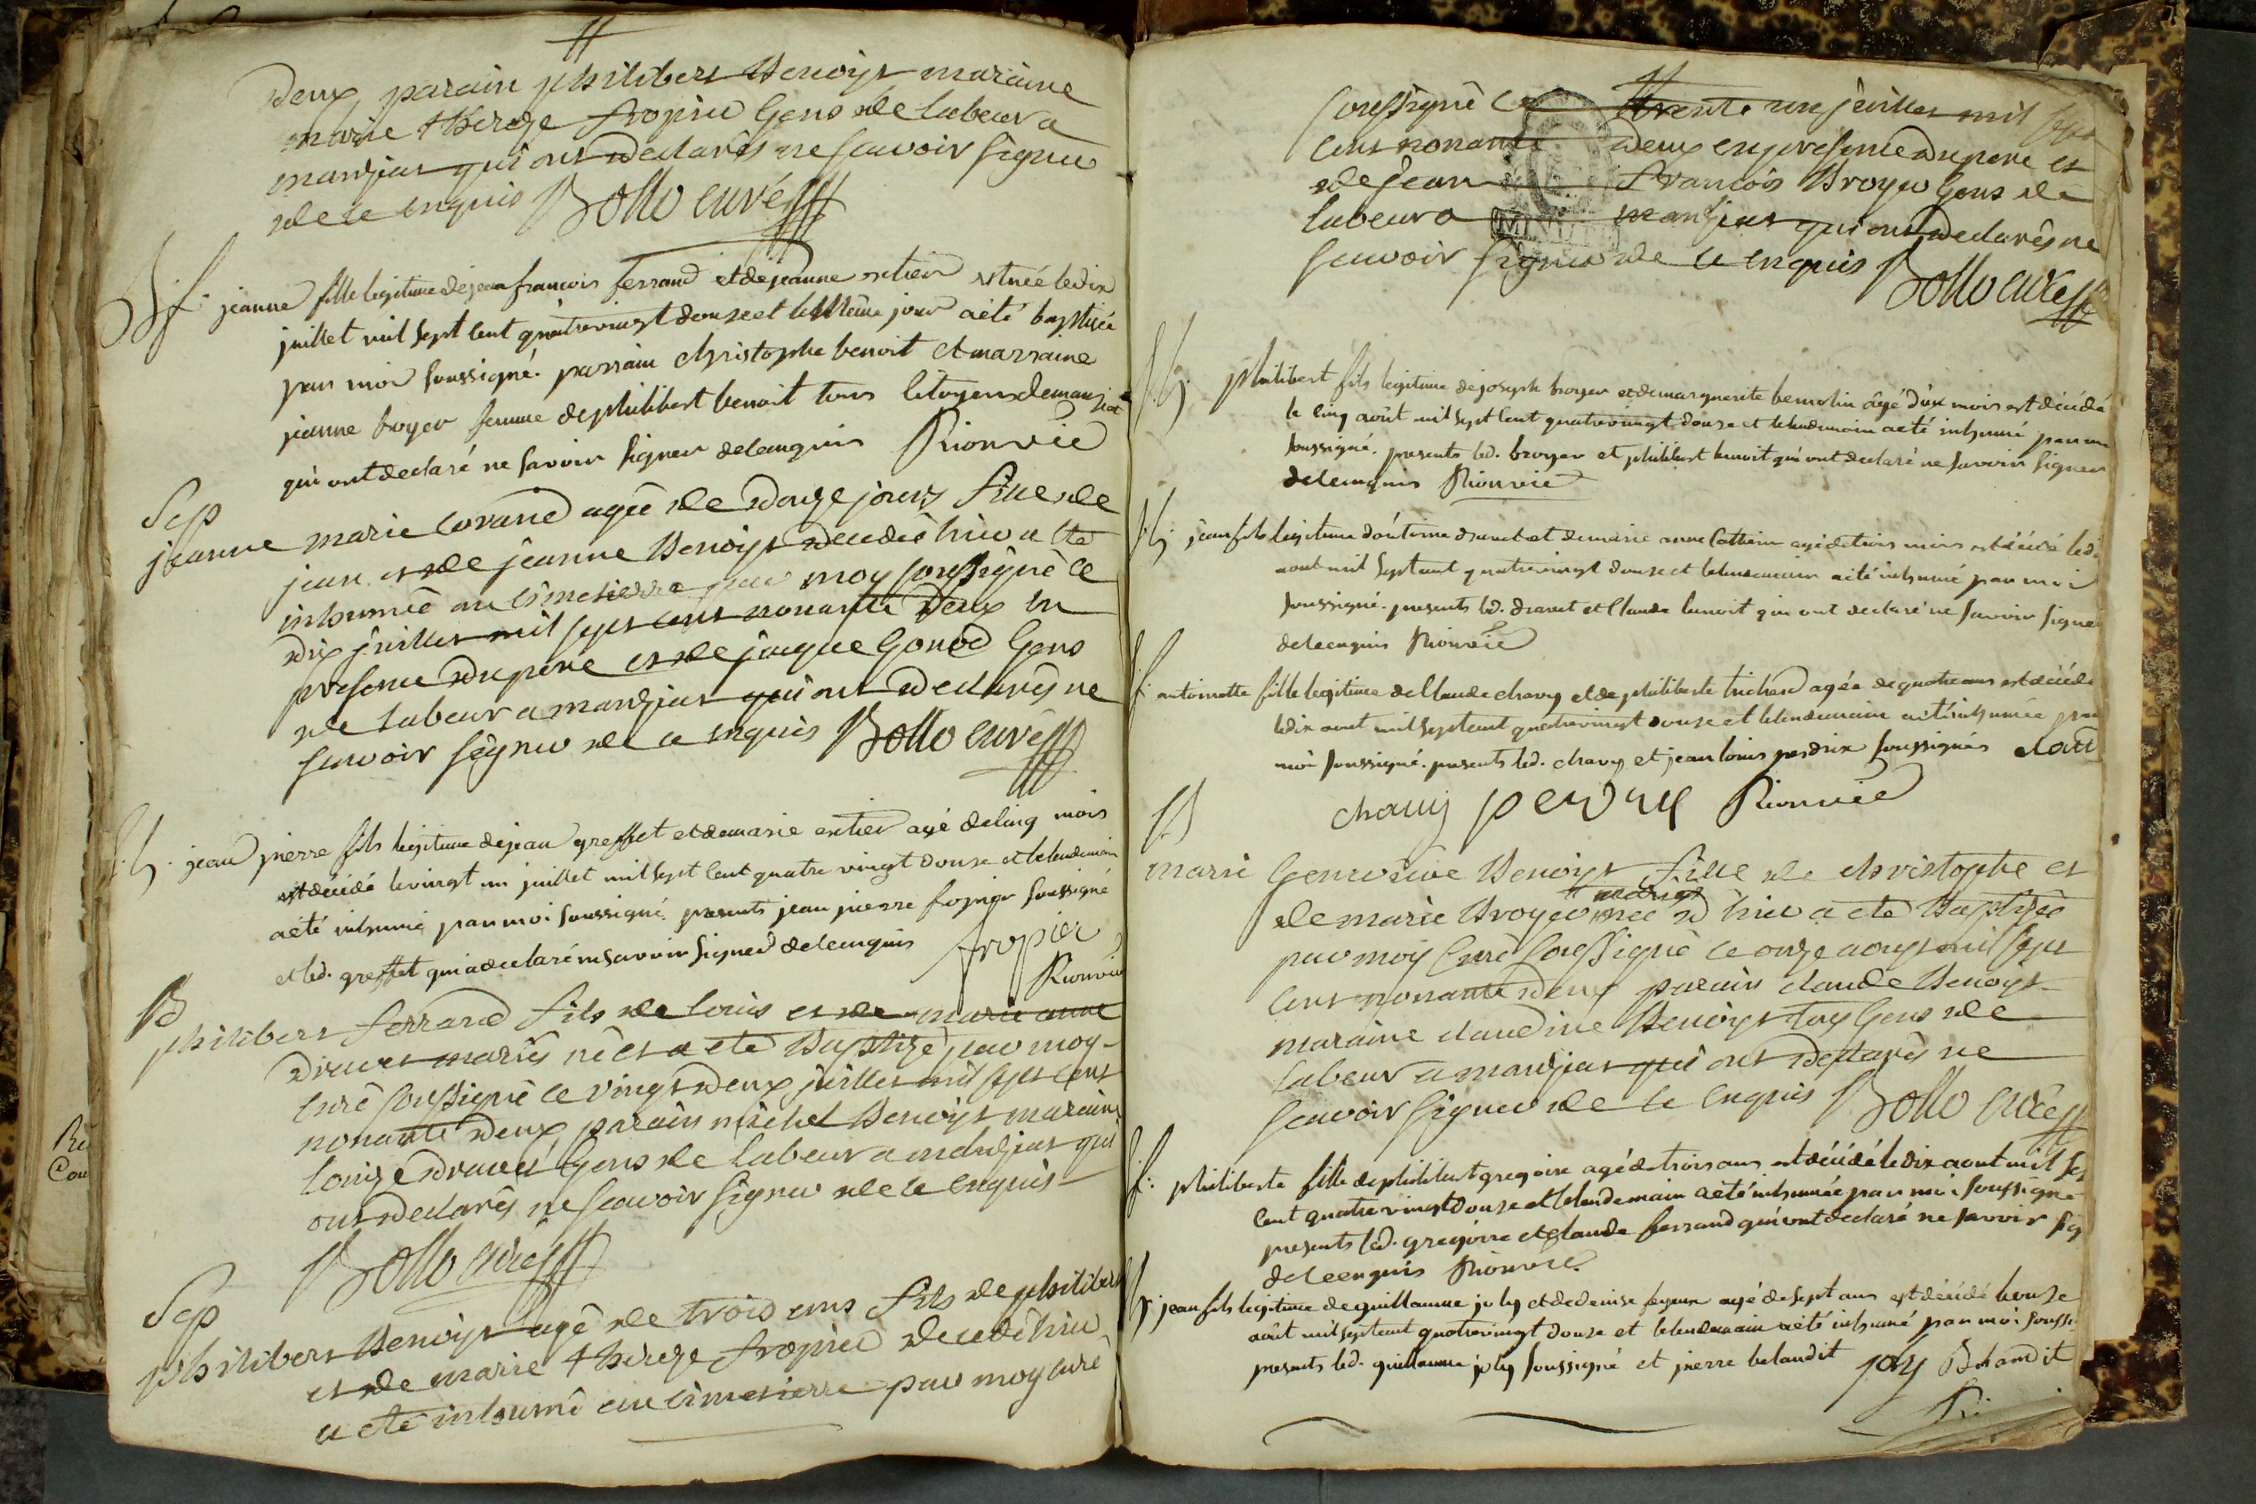 deux parain philibert Benoist maraine
marie thereze fropier gens de labeur a
manziat qui ont declarês ne scavoir signer
de ce enquis Bollo curé
jeanne fille legitime de jean francois ferrand et de jeanne estier est née le dix
juillet mil sept cent quatrevingt douze et le même jour a été baptisée
par moi soussigné. parrain christophe benoit et marraine
jeanne broyer femme de philibert benoit tous citoyens de manziat
qui ont declaré ne savoir signer de ce enquis
Sep
jeanne marie corand agée de douze jours fille de
jean et de jeanne Benoist decedês hier a ete
inhumeê au cimetierre par moy soussignê ce
dix juillet mil sept cent nonante deux en
presence du pere et de jacque Gonod gens
de labeur a manziat qui ont declarês ne
scavoir signer de ce enquis Bollo curé
jean pierre fils legitime de jean greffet et de marie estier agé de cinq mois
est décédé le vingt un juillet mil sept cent quatre vingt douze et le lendemain
a été inhumé par moi soussigné. presents jean pierre fropier soussigné
et led. greffet qui a declaré ne savoir signer de ce enquis fropier
B
philibert ferrand fils de louis et de marie anne
druet mariês nê et a ete Baptizê par moy
curê soussignê ce vingt deux juillet mil sept cent
nonante deux parain michel Benoist maraine
louize gens de labeur a manziat qui
ont declarês ne scavoir signer de ce enquis
Bollo curé
Sep
philibert Benoist agê de trois ans fils de philibert
et de marie thereze fropier decedê hier
a ete inhumê au cimetierre par moy curê
soussignê ce trente un juillet mil sept
cent nonante deux en presence du pere et
de jean francois Broyer gens de
labeur a manziat qui ont declarês ne
scavoir signer de ce enquis Bollo curé
philibert fils legitime de joseph broyer et de marguerite agé d'un mois est décédé
le cinq août mil sept cent quatrevingt douze et le lendemain a été inhumé par moi
soussigné. presents led. broyer et philibert benoit qui ont declaré ne savoir signer
de ce enquis
jean fils legitime d'antoine et de marie anne agé de trois mois est décédé
aout mil sept cent quatrevingt douze et le lendemain a été inhumé par moi
soussigné. presents led. et claude benoit qui ont declaré ne savoir signer
de ce enquis
antoinette fille legitime de claude chavy et de philiberte agée de quatre ans est décédée
le dix aout mil sept cent quatrevingt douze et le lendemain a été inhumée par
moi soussigné. presents led. chavy et jean louis perdrix soussignés
chavy perdrix
B
marie Genevieve Benoist fille de christophe et
de marie Broyer mariês nee d'hier a ete Baptizeê
par moy curê soussignê ce onze aoust mil sept
cent nonante deux parain claude Benoist
maraine claudine Benoist tous gens de
labeur a manziat qui ont declarês ne
scavoir signer de ce enquis Bollo curé
philiberte fille de philibert gregoire agé de trois ans est décédé le dix aout mil sept
cent quatrevingt douze et le lendemain a été inhumée par moi soussigné
presents led. gregoire et claude ferrand qui ont declaré ne savoir sig
de ce enquis
jean fils legitime de guillaume joly et de denise agé de sept ans est décédé le onze
août mil sept cent quatrevingt douze et le lendemain a été inhumé par moi
presents led. guillaume joly soussigné et pierre joly